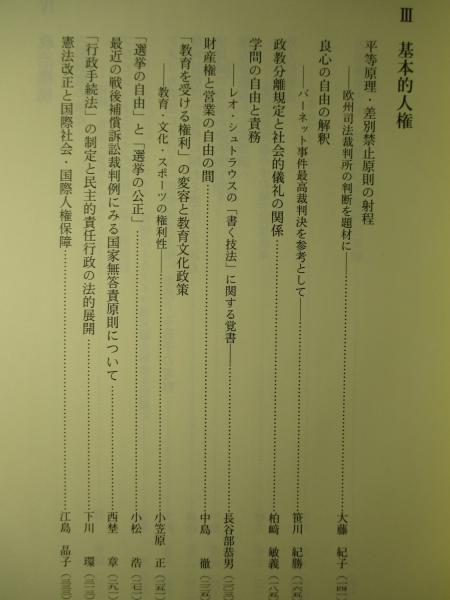 III 基本的人権
平等原理・差別禁止原則の射程
――欧州司法裁判所の判断を題材に―― 大藤 紀子
良心の自由の解釈
――バーネット事件最高裁判決を参考として―― 笹川 紀勝(一六五)
政教分離規定と社会的儀礼の関係 柏﨑 敏義(一八五)
学問の自由と責務
――レオ・シュトラウスの「書く技法」に関する覚書―― 長谷部恭男(二〇三)
財産権と営業の自由の間 中島 徹(二二五)
「教育を受ける権利」の変容と教育文化政策
――教育・文化・スポーツの権利性―― 小笠原 正(二五一)
「選挙の自由」と「選挙の公正」 小松 浩(二七一)
最近の戦後補償訴訟裁判例にみる国家無答責原則について 西埜 章(二九一)
「行政手続法」の制定と民主的責任行政の法的展開 下川 環(三一一)
憲法改正と国際社会・国際人権保障 江島 晶子(三三三)